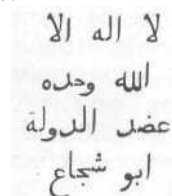 لا اله الا
الله وحده
عضد الدولة
ابو شجاع